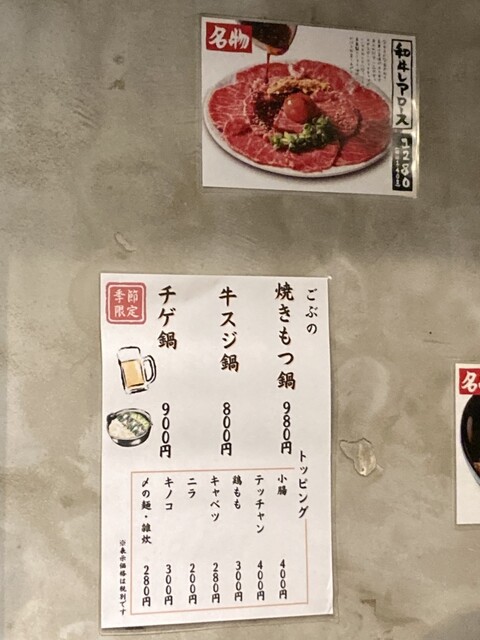 名物
和牛レアロース
1280
季節
限定
ごぶの
焼きもつ鍋 980円
牛スジ鍋 800円
チゲ鍋 900円
トッピング
小腸 400円
テッチャン 400円
鶏もも 300円
キャベツ 280円
ニラ 200円
キノコ 300円
〆の麺・雑炊 280円
※表示価格は税別です
名